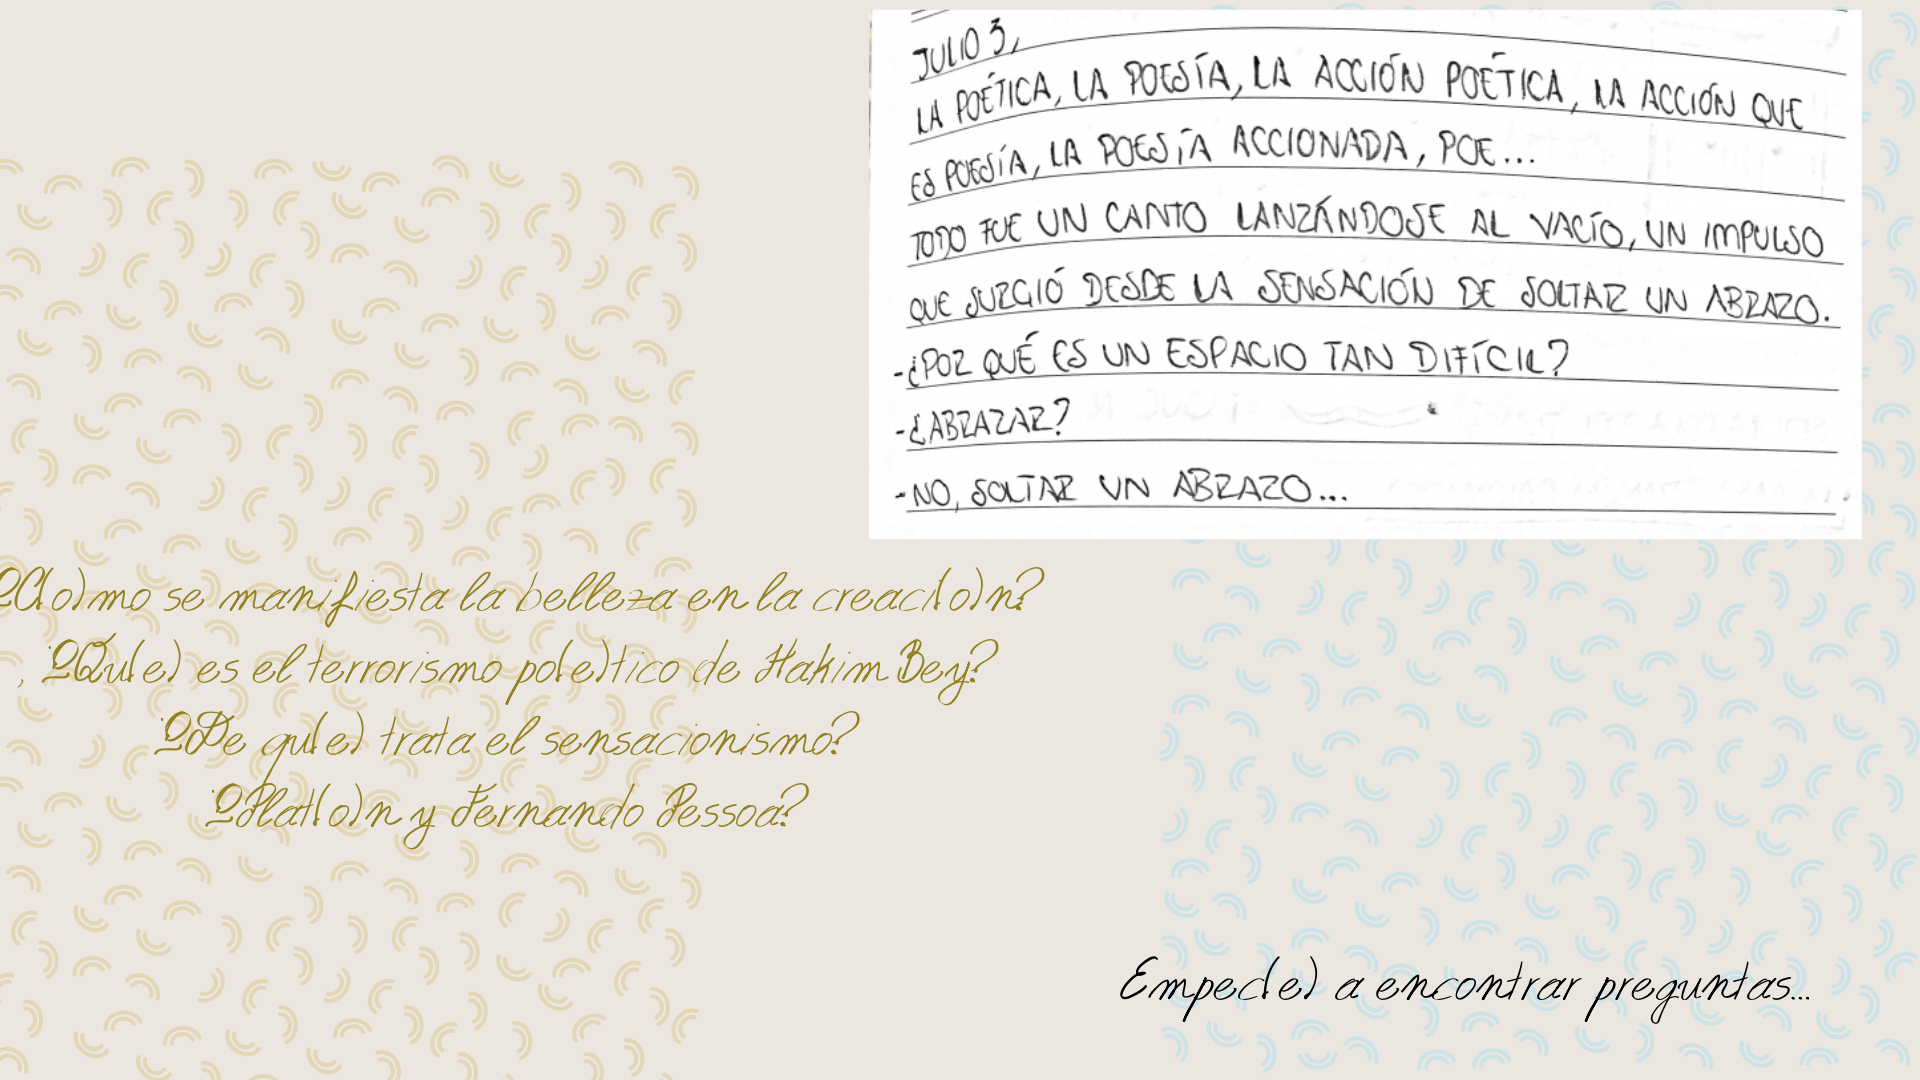 JULIO 3,
LA POÉTICA, LA POESÍA, LA ACCIÓN POÉTICA, LA ACCIÓN QUE
ES POESÍA, LA POESÍA ACCIONADA, POE...
TODO FUE UN CANTO LANZÁNDOSE AL VACÍO, UN IMPULSO
QUE SURGIÓ DESDE LA SENSACIÓN DE SOLTAR UN ABRAZO.
-¿POR QUÉ ES UN ESPACIO TAN DIFÍCIL?
-¿ABRAZAR?
-NO, SOLTAR UN ABRAZO...
ºC(o)mo se manifiesta la belleza en la creaci(o)n?
, ºQu(e) es el terrorismo po(e)tico de Hakim Bey?
ºDe qu(e) trata el sensacionismo?
ºPlat(o)n y Fernando Pessoa?
Empec(e) a encontrar preguntas...